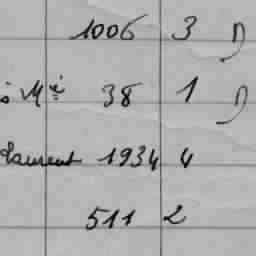 1006 3 D
is Mi 38 1 D
Laurent 1934 4
511 2